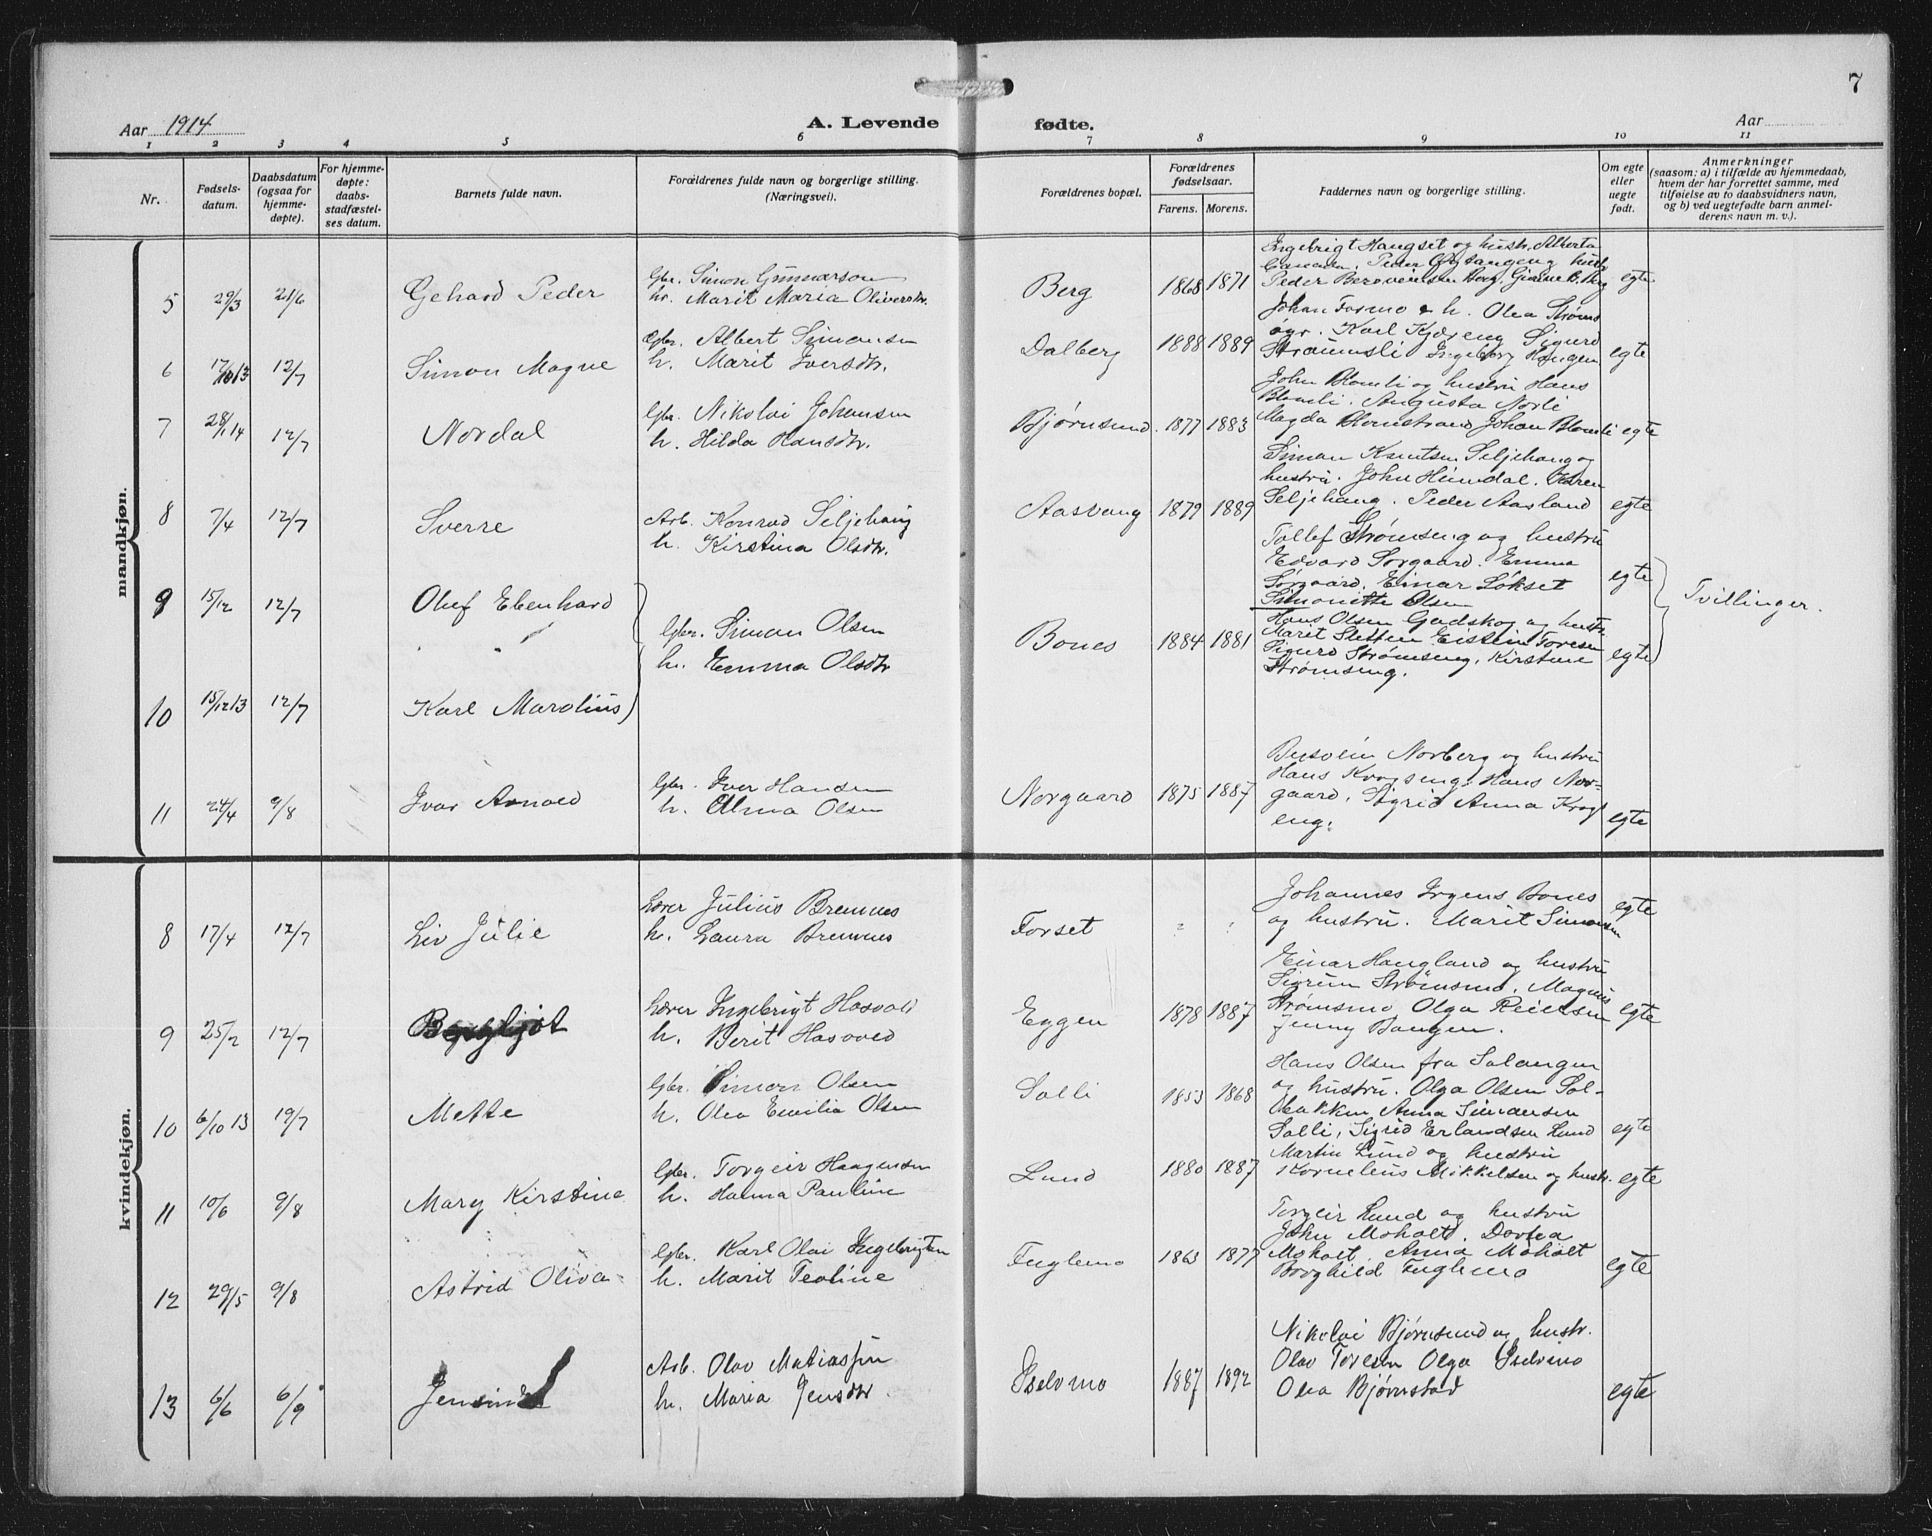 7
Aar 1914 A. Levende fødte. Aar
1 2 3 4 5 6 7 8 9 10 11
Nr. Fødsels-datum. Daabsdatum (ogsaa for hjemme-døpte). For hjemme-døpte: daabs-stadfæstel-ses datum. Barnets fulde navn. Forældrenes fulde navn og borgerlige stilling. (Næringsvei). Forældrenes bopæl. Forældrenes fødselsaar. Farens. Morens. Faddernes navn og borgerlige stilling. Om egte eller uegte født. Anmerkninger (saasom: a) i tilfælde av hjemmedaab, hvem der har forrettet samme, med tilføielse av to daabsvidners navn, og b) ved uegtefødte barn anmel-derens navn m. v.).
mandkjøn.
5 29/3 21/6 Gehard Peder
Gbr. Simon Gunnarson
h. Marit Maria Oliversdtr.
Berg 1868 1871
Ingebrigt Haugset og hustr. Alberta
egte
6 12/7 Simon Magne
Gbr. Albert Simonsen
h. Marit Iversdtr.
Dalberg 1888 1889
Johan Formo & h. Olea Strøms
øyr. Karl Kjøreng Sigurd
Strømsli Ingeborg Haugen
egte
7 28/1 14 12/7 Nordal
Gbr. Nikolai Johansen
h. Hilda Hansdtr.
Bjørnsund. 1877 1883
John Blomli og hustru Hans
Blomli. Augusta Norli
Magda Blomstrand Johan Blomli
egte
8 7/4 12/7 Sverre
Arb. Konrad Seljehaug
h. Kirstina Olsdtr.
Aasvang 1879 1889
Simon Knutsen Seljehaug og
hustru. John Heimdal. Karen
Seljehaug. Peder Aasland
egte
9 15/12 12/7 Oluf Ebenhard
Gbr. Simon Olsen
h. Emma Olsdtr
Bones 1884 1881
Tollef Strømseng og hustru
Edvard Sørgaard. Emma
Sørgaard. Einar Løkset
Simonitte Olsen
egte
Tvillinger.
10 15/12 13 12/7 Karl Marolius
Hans Olsen Godskog og hustr.
Marit Sletten Eistein Foresen
Sigurd Strømseng, Kirstine
Strømseng.
egte
11 24/4 9/8 Ivar Arnold
Gbr. Iver Hansen
h. Alma Olsen
Norgaard 1875 1887
Norberg og hustru
Hans Krogseng. Hans Nor-
gaard. Sigrid Anna Krogs
eng.
egte
kvindekjøn.
8 17/4 12/7 Liv Julie
Lærer Julius Bremnes
h. Laura Bremnes
Forset
Johannes Irgens Bones
og hustru. Marit Simonsen
egte
9 25/2 12/7 Bergljot
Lærer Ingebrigt Hasvold
h. Berit Hasvold
Eggen 1878 1887
Einar Haugland og hustru
Sigrun Strømsmo. Magnus
Strømsmo Olga Reiersen
Jenny Bangen.
egte
10 6/10 13 19/7 Mette
Gbr. Simon Olsen
h. Olea Emilia Olsen
Solli 1853 1868
Hans Olsen fra Salangen
og hustru. Olga Olsen Sol-
bakken Anna Simonsen
Solli, Sigrid Erlandsen Lund
egte
11 10/6 9/8 Mary Kirstine
Gbr. Torgeir Haagensen
h. Hanna Pauline
Lund 1880 1887
Martin Lund og hustru
Kornelius Mikkelsen og hustr.
egte
12 29/5 9/8 Astrid Oliva
Gbr. Karl Olai Ingebrigtsen
h. Marit Teoline
Fuglemo 1863 1877
Torgeir Lund og hustru
John Moholt. Dortea
Moholt. Anna Moholt
Borghild Fuglemo
egte
13 6/6 6/9 Jensine
Arb. Olav Matiassen
h. Maria Jensdtr
Iselvmo 1887 1892
Nikolai Bjørnsund og hustr.
Olav Foresen Olga Iselvmo
Olea Bjørnstad
egte